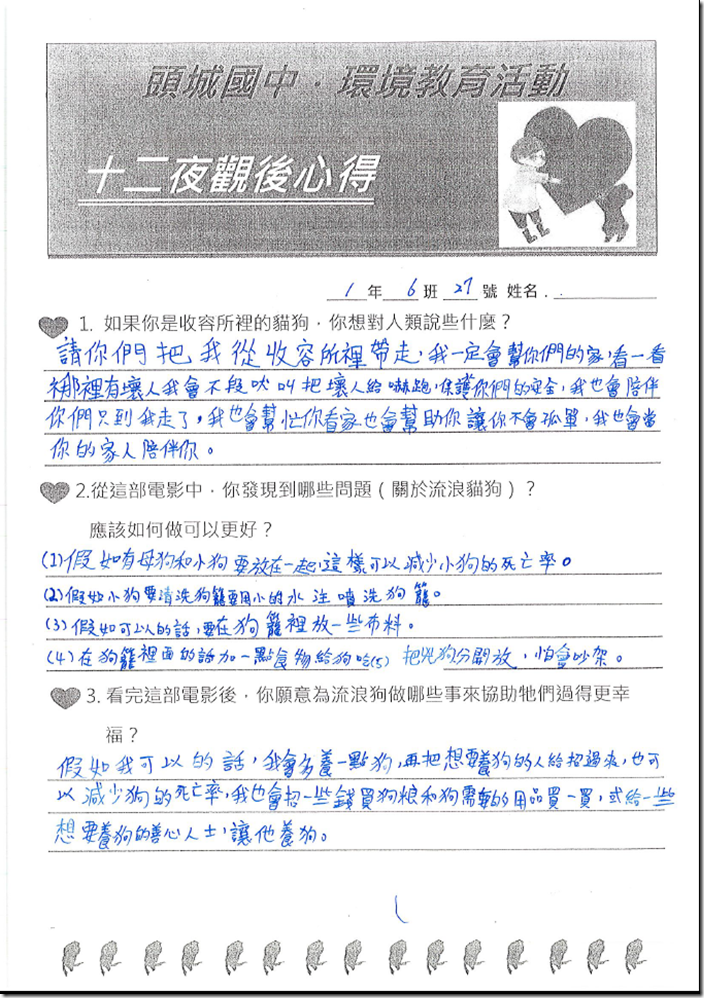 頭城國中．環境教育活動
十二夜觀後心得
1 年 6 班 27 號 姓名．
1. 如果你是收容所裡的貓狗，你想對人類說些什麼？
請你們把我從收容所裡帶走，我一定會幫你們的家，看一看
哪裡有壞人我會不段吠叫把壞人給嚇跑，保護你們的安全，我也會陪伴
你們只到我走了，我也會幫忙你看家也會幫助你讓你不會孤單，我也會當
你的家人陪伴你。
2.從這部電影中，你發現到哪些問題（關於流浪貓狗）？
應該如何做可以更好？
(1)假如有母狗和小狗要放在一起，這樣可以減少小狗的死亡率。
(2)假如小狗要清洗狗籠要用小的水注噴洗狗籠。
(3)假如可以的話，要在狗籠裡放一些布料。
(4)在狗籠裡面的話加一點食物給狗吃(5)把兇狗分開放，怕會吵架。
3. 看完這部電影後，你願意為流浪狗做哪些事來協助牠們過得更幸
福？
假如我可以的話，我會多養一點狗，再把想要養狗的人給招過來，也可
以減少狗的死亡率，我也會招一些錢買狗糧和狗需要的用品買一買，或給一些
想要養狗的善心人士，讓他養狗。